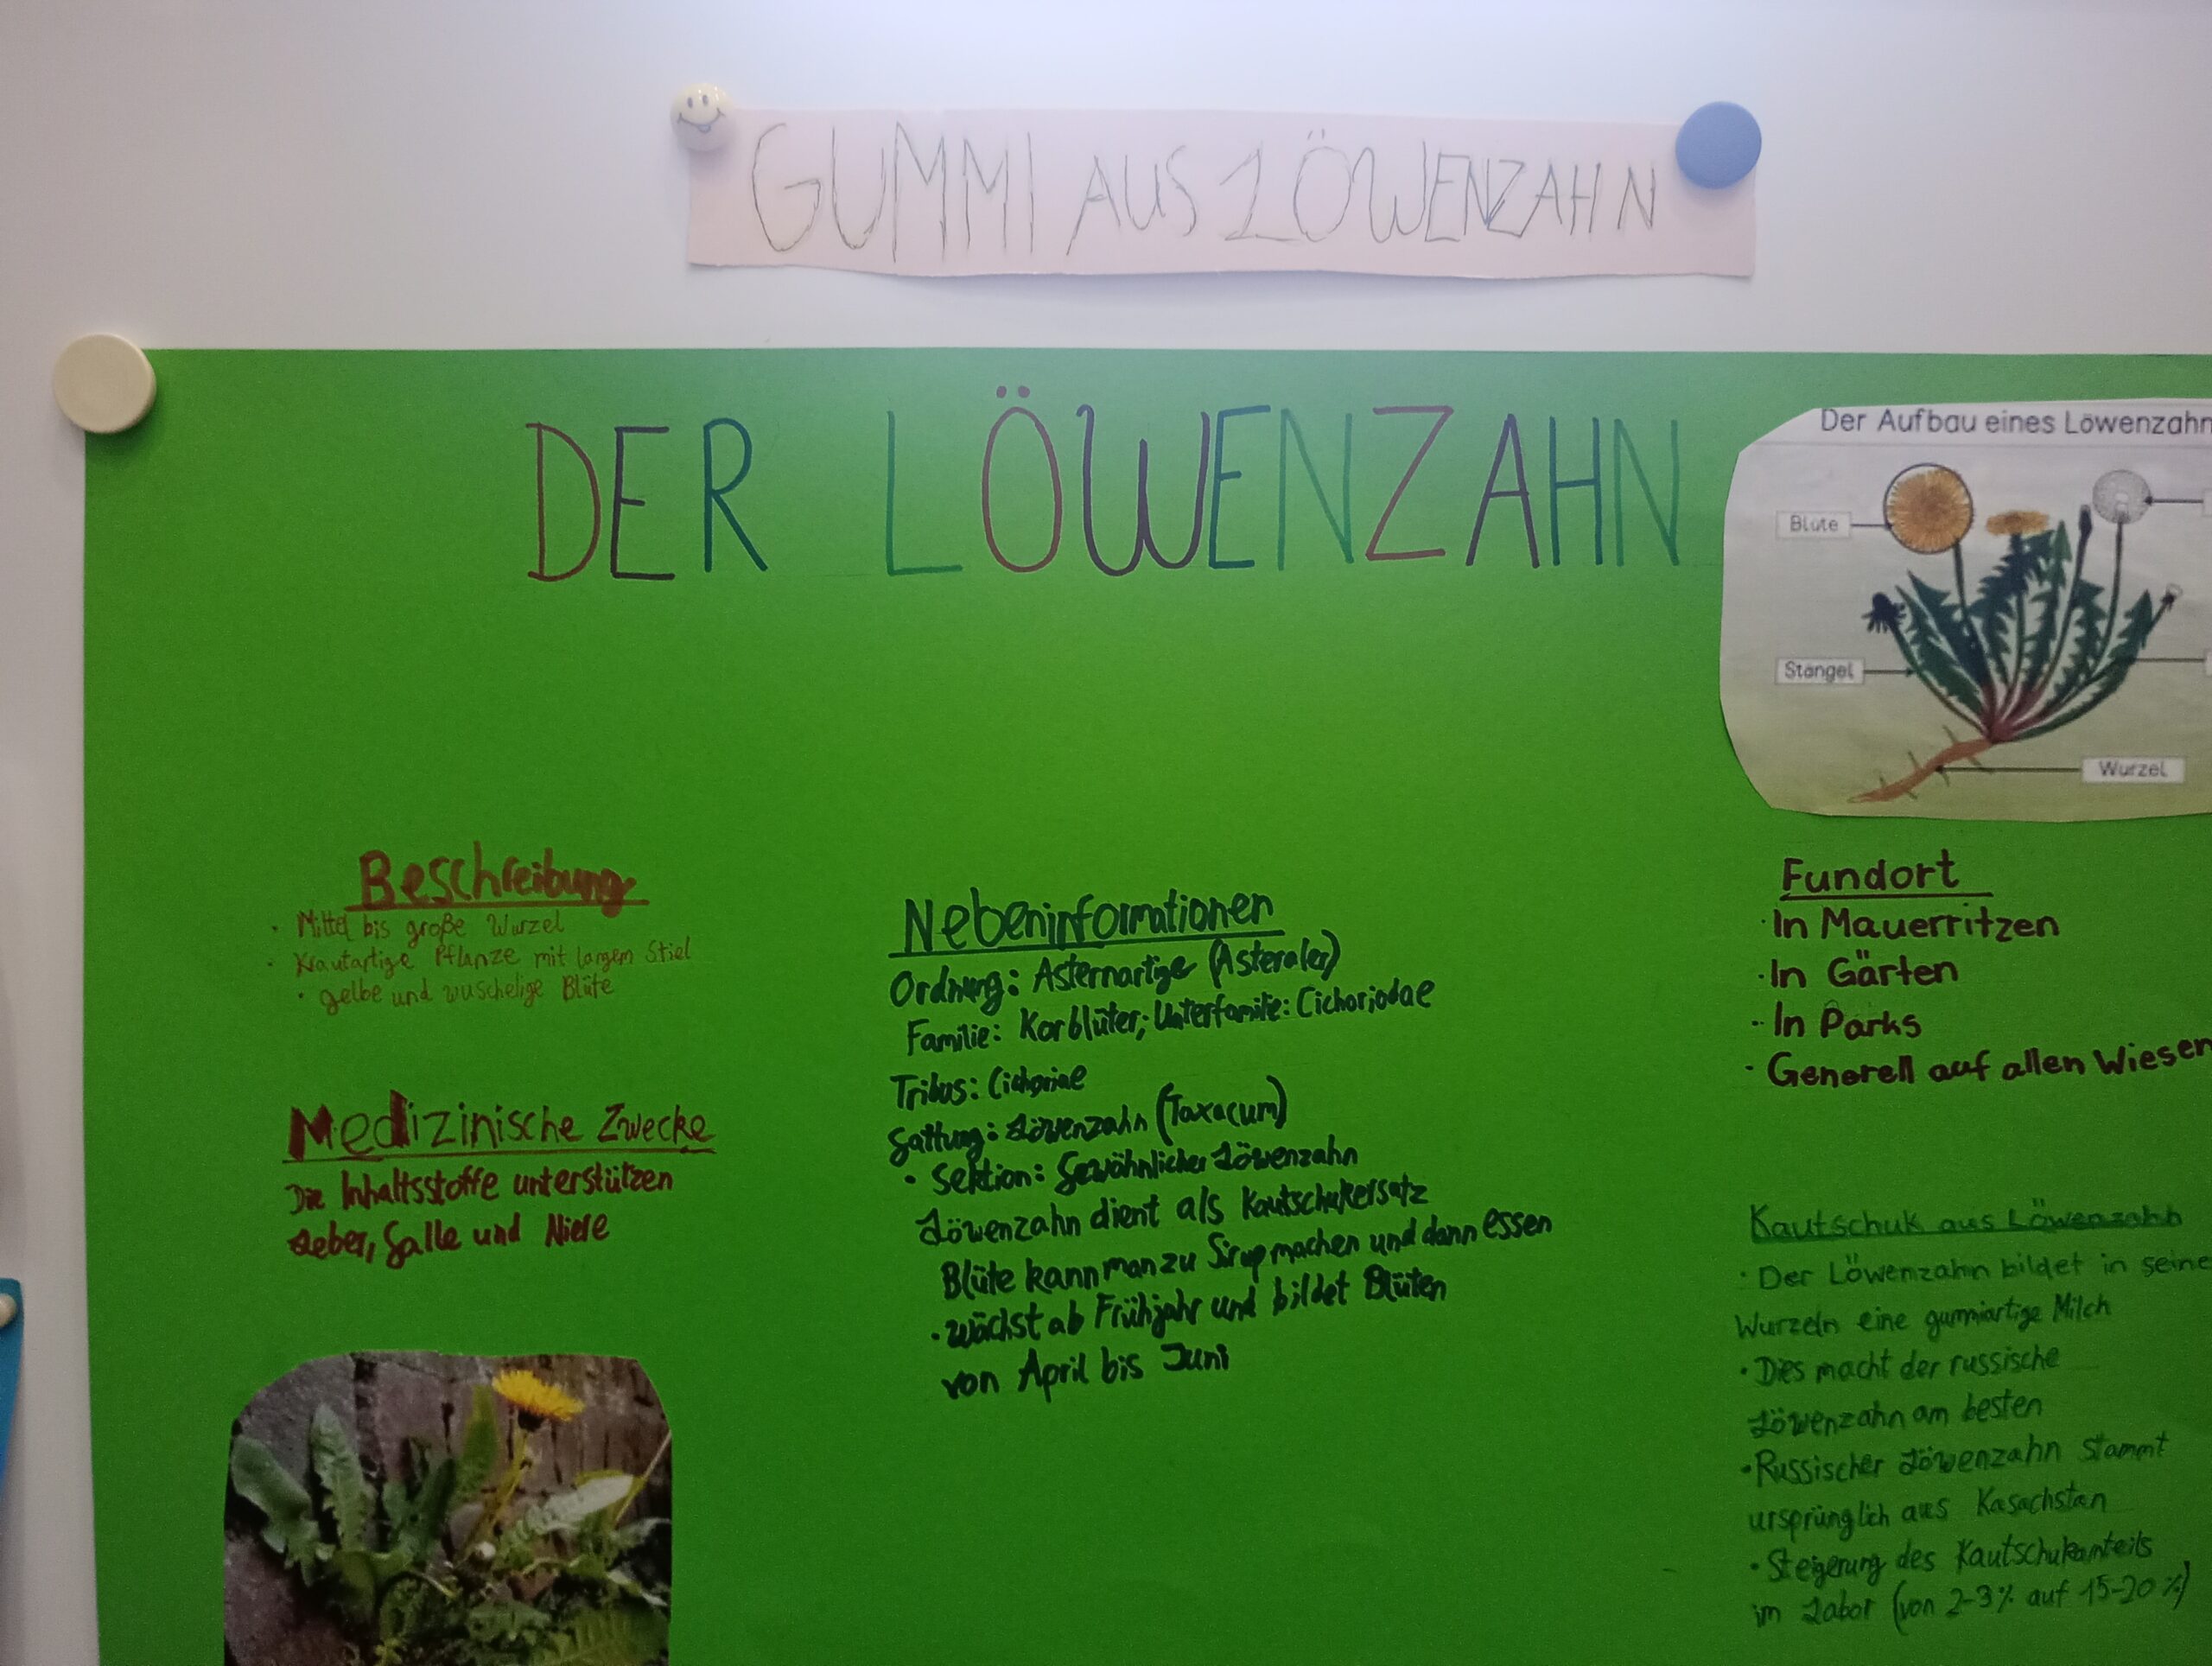 GUMMI AUS LÖWENZAHN
DER LÖWENZAHN
Der Aufbau eines Löwenzahn
Blüte
Stängel
Wurzel
Beschreibung
· Mittel bis große Wurzel
· Krautartige Pflanze mit langem Stiel
· gelbe und wuschelige Blüte
Medizinische Zwecke
Die Inhaltsstoffe unterstützen
Leber, Galle und Niere
Nebeninformationen
Ordnung: Asternartige (Asterales)
Familie: Korblüter; Unterfamilie: Cichoriodae
Tribus: Cichoriae
Gattung: Löwenzahn (Taxacum)
· Sektion: Gewöhnlicher Löwenzahn
Löwenzahn dient als Kautschukersatz
Blüte kann man zu Sirup machen und dann essen
· wächst ab Frühjahr und bildet Blüten
von April bis Juni
Fundort
· In Mauerritzen
· In Gärten
· In Parks
· Generell auf allen Wiesen
Kautschuk aus Löwenzahn
· Der Löwenzahn bildet in seine
Wurzeln eine gummiartige Milch
· Dies macht der russische
Löwenzahn am besten
· Russischer Löwenzahn stammt
ursprünglich aus Kasachstan
· Steigerung des Kautschukanteils
im Labor (von 2-3% auf 15-20%)